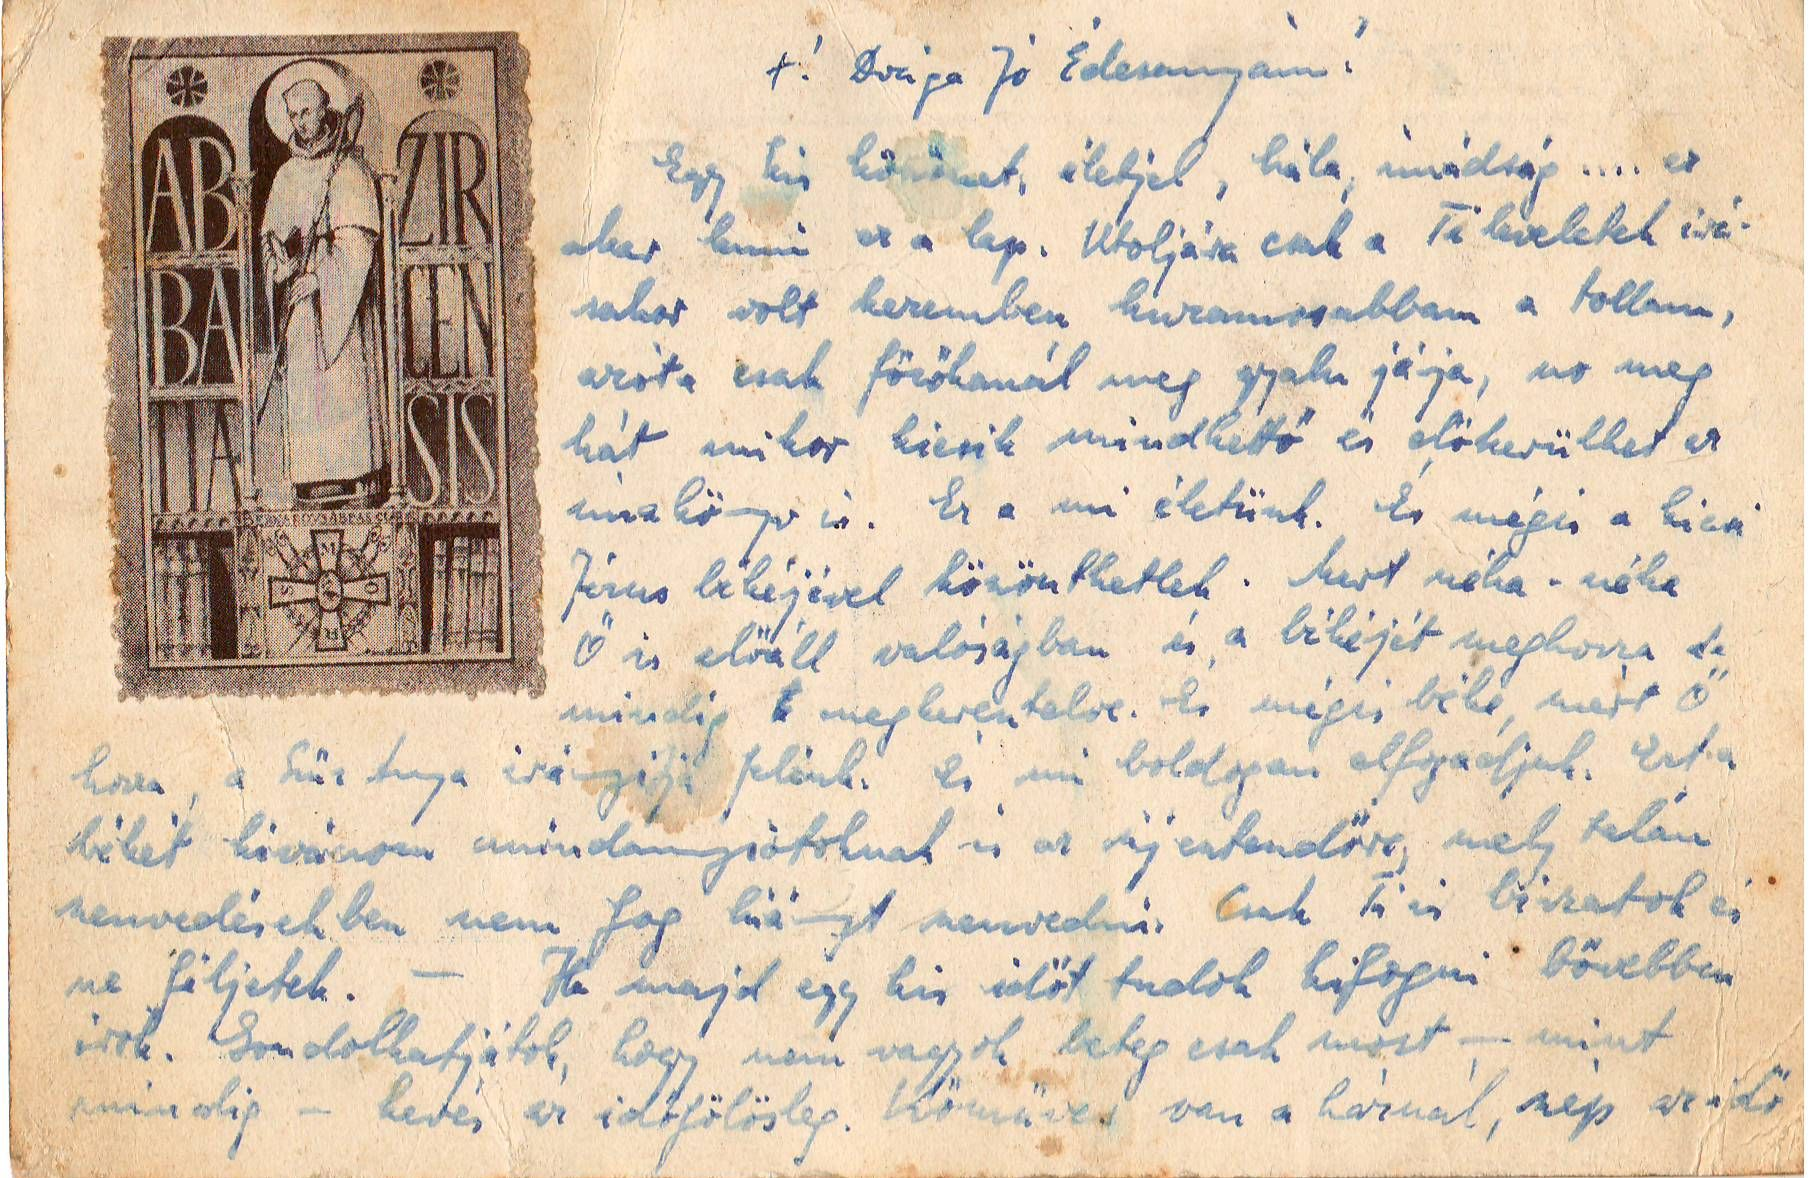 AB ZIR
BA CEN
TIA SIS
M
S O
+! Drága Jó Édesanyám!
Egy kis köszönet, életjel, hála, imádság .... ez
akar lenni ez a lap. Utoljára csak a Ti leveletek irá-
sakor volt kezemben huzamosabban a tollam,
azóta csak főzőkanál meg gyalu járja, no meg
hát mikor kicsik mindkettő és előkerülhet az
imakönyv is. Ez a mi életünk. És mégis a kicsi
Jézus békéjével köszönthetlek. Mert néha-néha
Ő is előáll valóságban és a békéjét meghozza de
mindig megkeresztelve. És mégis béke, mert Ő
hozza, a Szűz Anya irányítja felénk. És mi boldogan elfogadjuk. Ezt a
békét kívánom mindannyiótoknak is az új esztendőre, mely talán
szenvedésekben nem fog hiányt szenvedni. Csak Ti is bízzatok és
ne féljetek. — Ha majd egy kis időt tudok kifogni bővebben
írok. Gondolhatjátok, hogy nem vagyok beteg csak most — mint
mindig — kevés az időfölösleg. Kőműves van a háznál, szép az idő